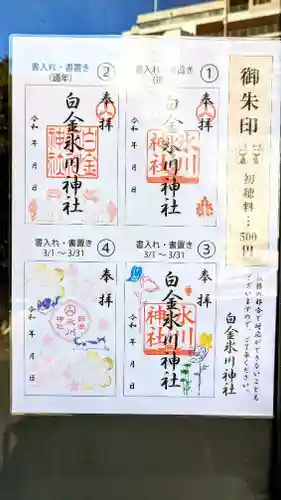 御朱印
初穂料…500円
江務の都合で対応ができないことも
ございますので、ご了承ください。
白金氷川神社
書入れ・書置き
①
奉拝
白金氷川神社
氷川
神社
令和 年 月 日
書入れ・書置き
(通年)
②
奉拝
白金氷川神社
白金
神社
令和 年 月 日
書入れ・書置き
3/1 〜 3/31
③
奉拝
白金氷川神社
氷川
神社
令和 年 月 日
書入れ・書置き
3/1 〜 3/31
④
奉拝
令和 年 月 日